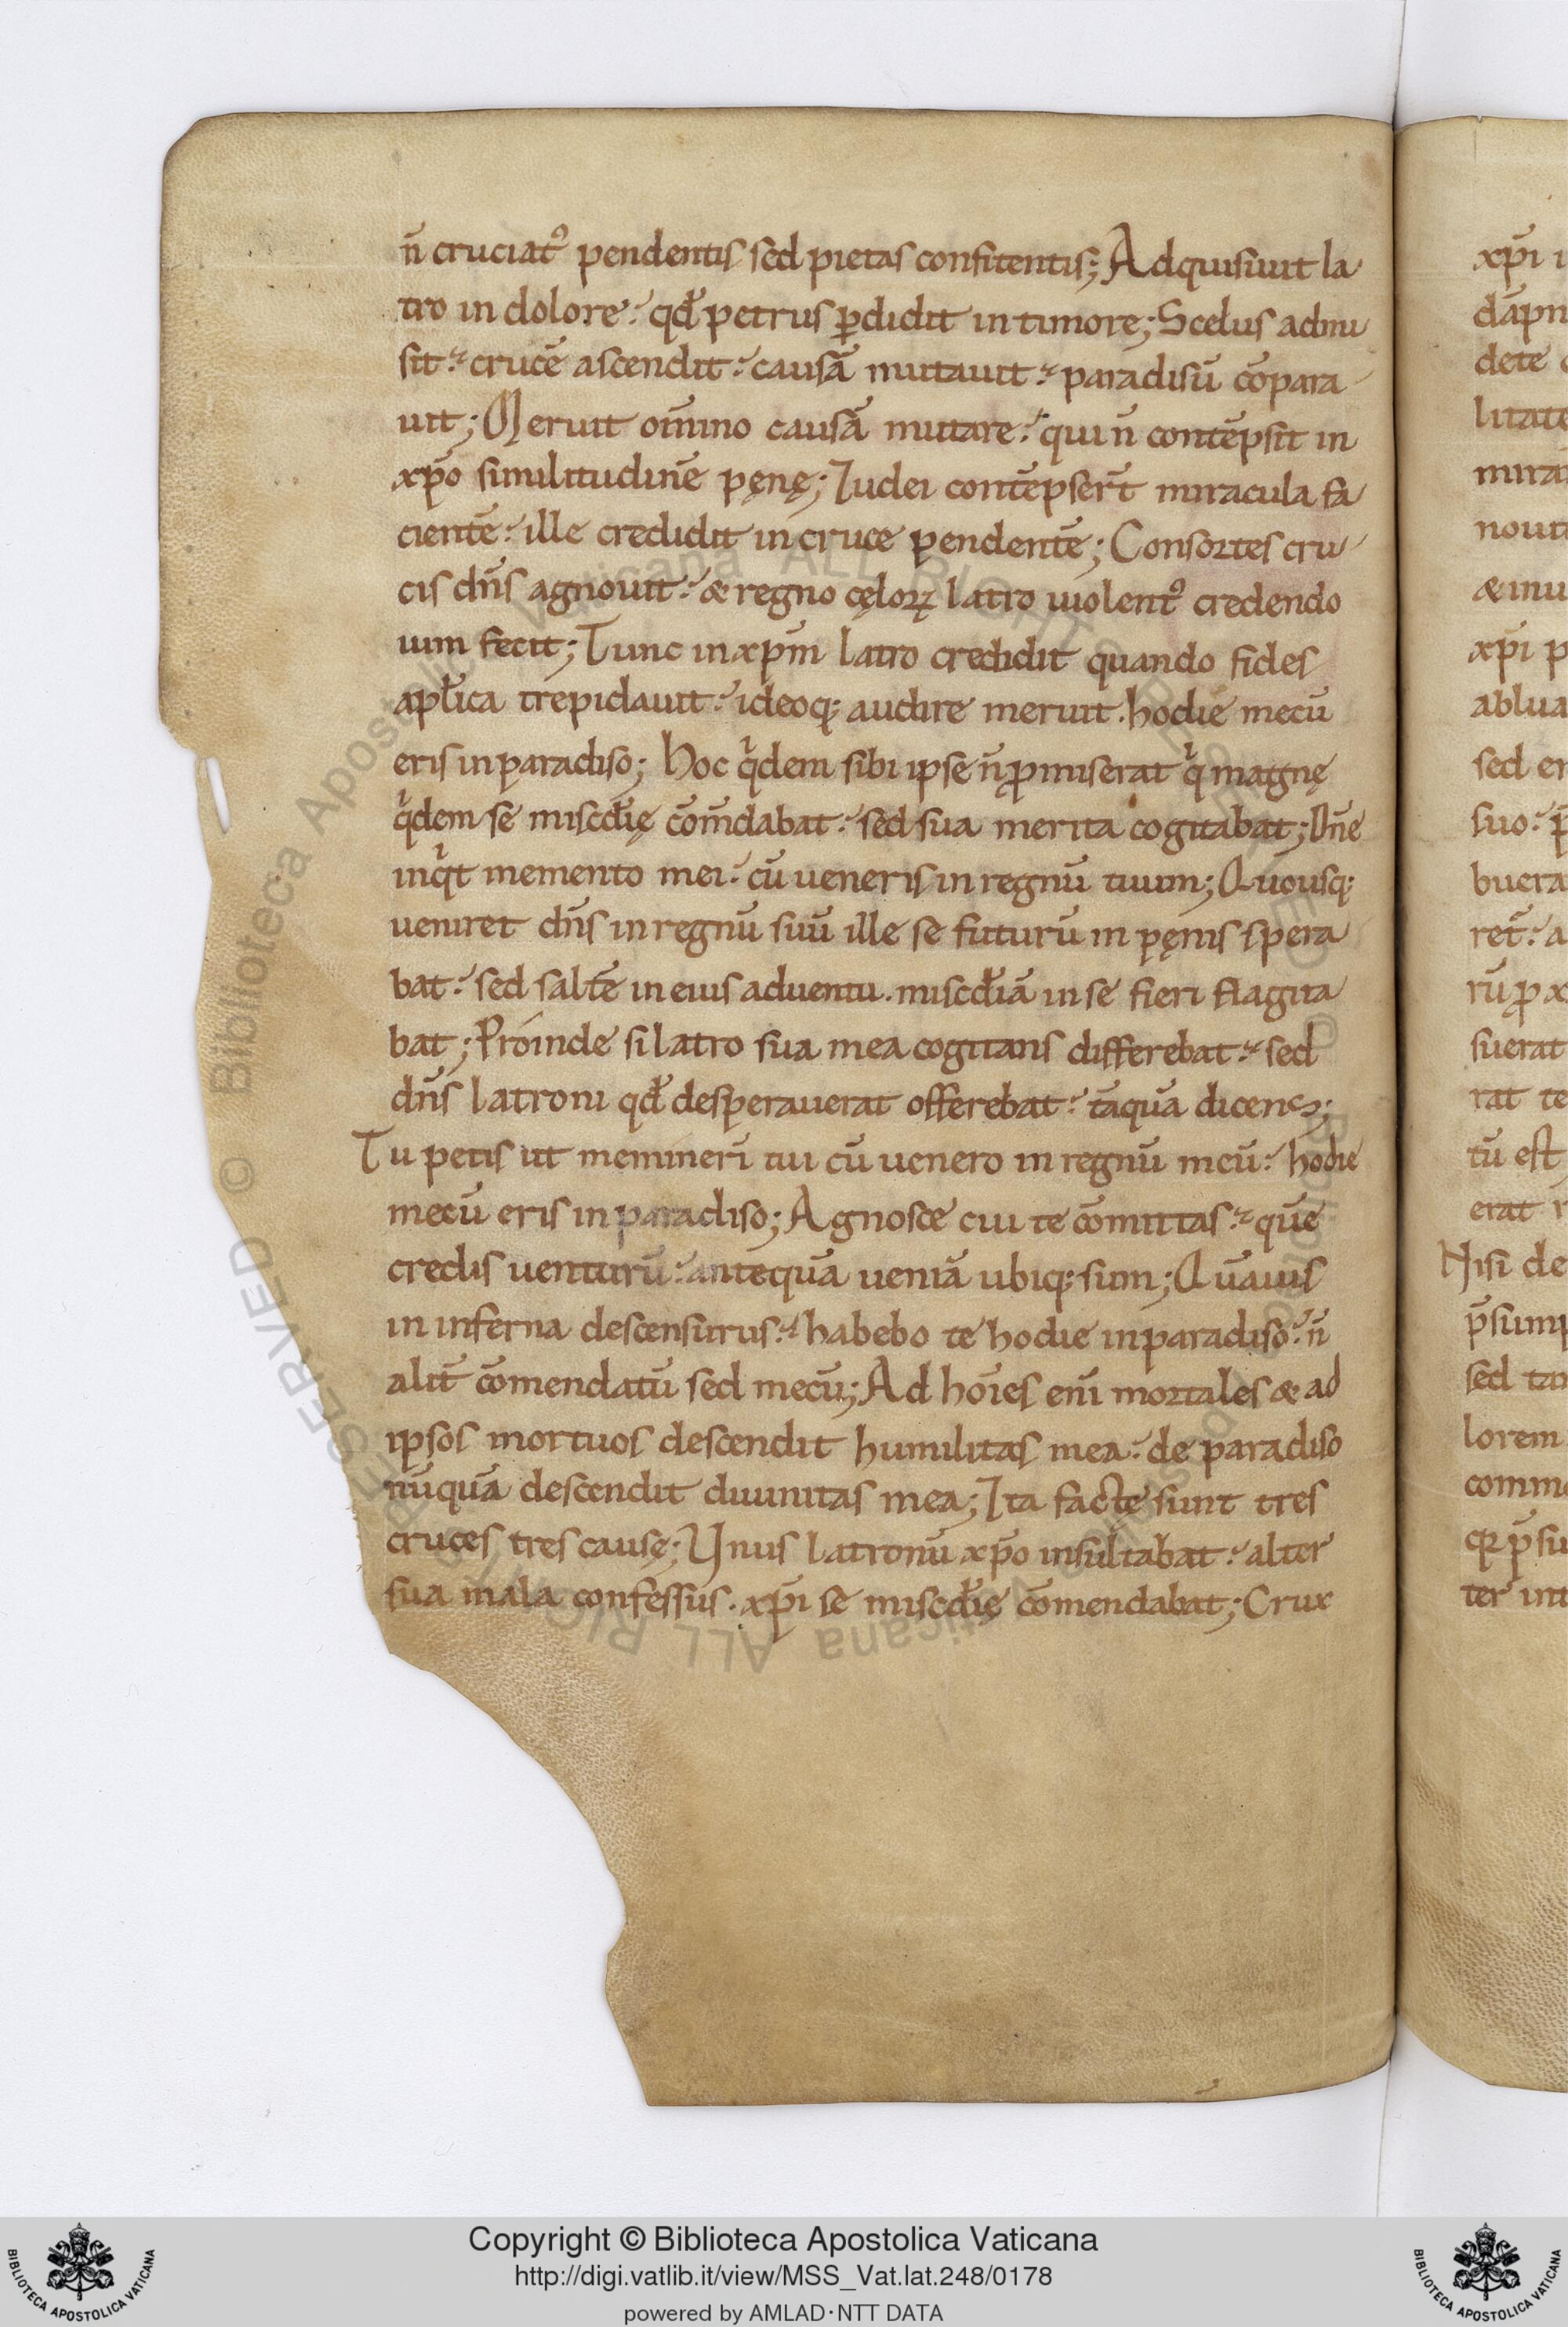 n̄ cruciatꝰ pendentis sed pietas confitentis; Adquisiuit la
tro in dolore. qđ petrus ꝑdidit in timore; Scelus admi
sit. crucē ascendit. causā mutauit. paradisū cōpara
uit; Meruit om̄ino causā mutare. qui n̄ contēpsit in
xp̄o similitudinē pęnę; Iudei contēpser̄t miracula fa
cientē. ille credidit in cruce pendentē; Consortes cru
cis dn̄s agnouit. & regno cęloꝝ latro uiolentꝰ credendo
uim fecit; Tunc in xp̄m latro credidit quando fides
apl̄ica trepidauit. ideoq; audire meruit. hodie mecū
eris in paradiso; Hoc qͥdem sibi ipse n̄ ꝓmiserat qͥ magnę
qͥdem se miscd̄ię cōm̄dabat. sed sua merita cogitabat; Dn̄e
inqͥt memento mei. cū ueneris in regnū tuum; Quousq;
ueniret dn̄s in regnū suū ille se futurū in pęnis spera
bat. sed saltē in eius aduentu. miscd̄iā in se fieri flagita
bat; Proinde si latro sua mea cogitans differebat. sed
dn̄s latroni qđ desperauerat offerebat. tāquā dicens;
Tu petis ut memineri tui cū uenero in regnū meū. hodie
mecū eris in paradiso; Agnosce cui te cōmittas. quē
credis uenturū. antequā ueniā ubiq; sum; Quāuis
in inferna descensurus. habebo te hodie in paradiso. n̄
alit̄ cōmendatū sed mecū; Ad hōies enī mortales & ad
ipsos mortuos descendit humilitas mea. de paradiso
nūquā descendit diuinitas mea; Ita facte sunt tres
cruces tres causę; Vnus latronū xp̄o insultabat. alter
sua mala confessus. xp̄i se miscd̄ię cōmendabat; Crux
xp̄i
dete
mira
xp̄i
ablua
sed
suo.
buera
suerat
rat te
tū est
erat
Nisi de
sed
lorem
ter int
© Biblioteca Apostolica Vaticana ALL RIGHTS RESERVED
Copyright © Biblioteca Apostolica Vaticana
http://digi.vatlib.it/view/MSS_Vat.lat.248/0178
powered by AMLAD·NTT DATA
BIBLIOTECA APOSTOLICA VATICANA
BIBLIOTECA APOSTOLICA VATICANA